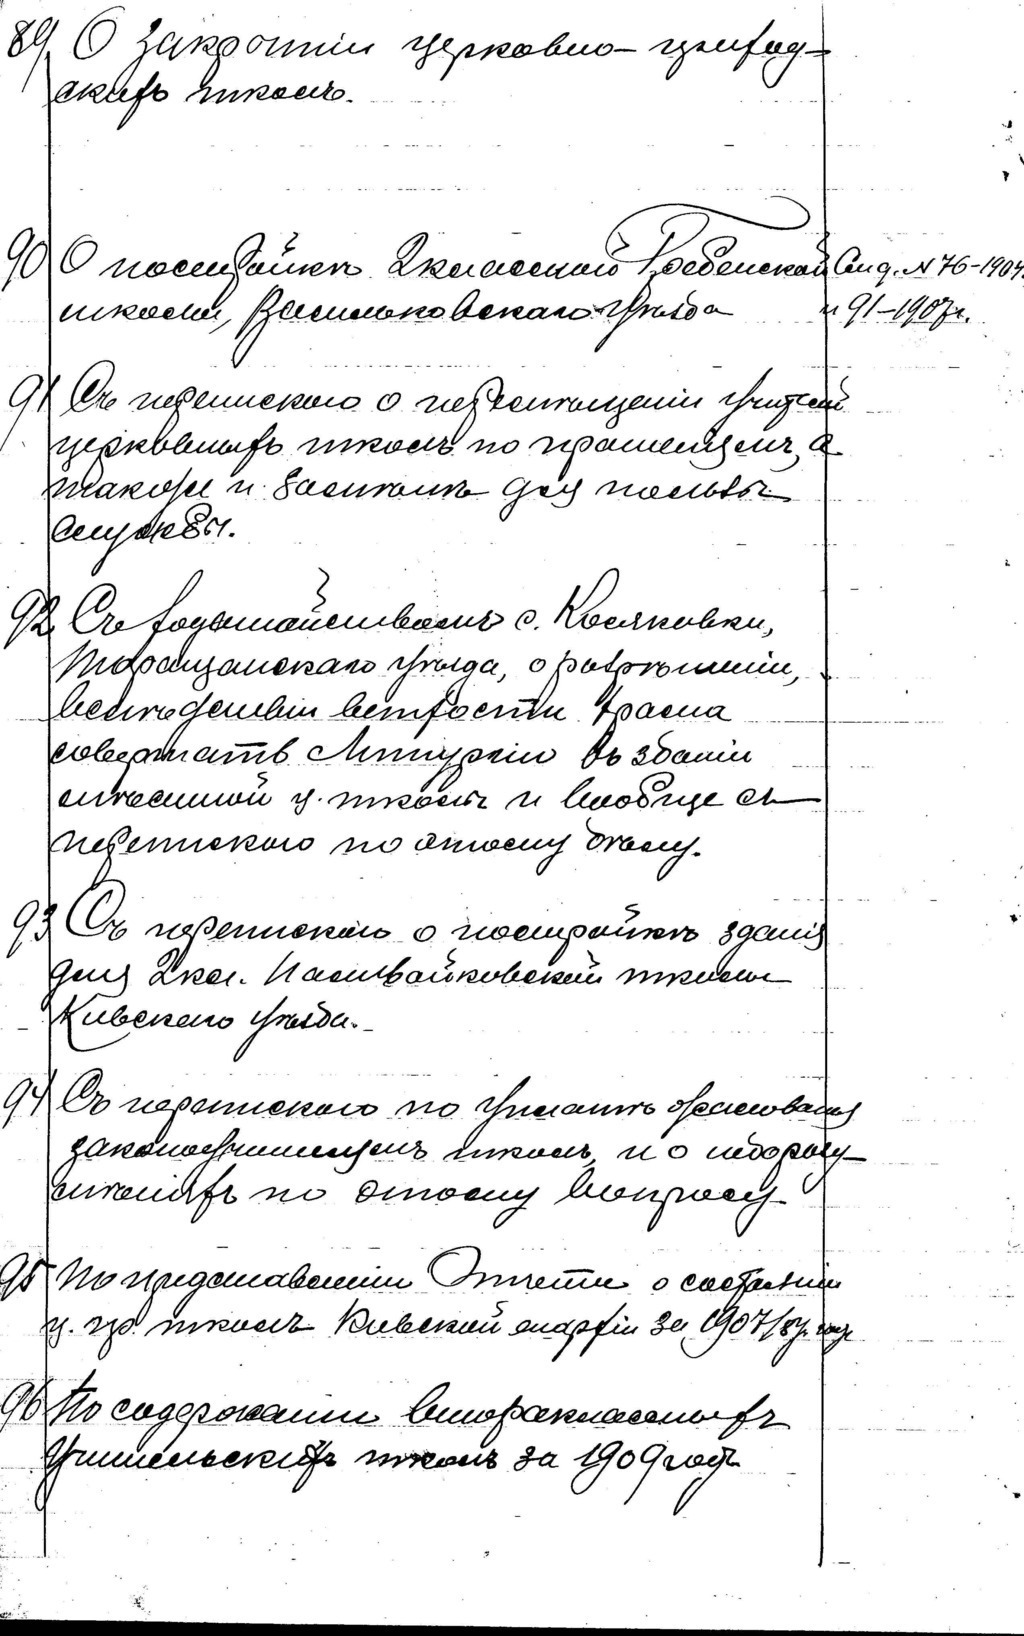 89 О закрытіи церковно-приход-
скихъ школъ.
90 О постройкѣ 2классной школы, Васильковскаго уѣзда
Слѣд. № 76-1904
и 91-1907г.
91 Съ перепискою о перемѣщеніи учителей
церковныхъ школъ по прошеніямъ, а
также и для пользы
службы.
92 Съ ходатайствомъ с. Косяковки,
Таращанскаго уѣзда, о разрѣшеніи,
вслѣдствіи ветхости храма
совершать Литургію въ зданіи
мѣстной ц. школы и вообще съ
перепискою по этому дѣлу.
93 Съ перепискою о постройкѣ зданія
для 2кл. школы
Кіевскаго уѣзда.
94 Съ перепискою по уплатѣ жалованья
законоучителямъ школъ, и о
по этому вопросу
95 По представленіи Отчета о состояніи
ц. пр. школъ Кіевской епархіи за 1907/8 у. годъ
96 По содержанію второклассныхъ
учительскихъ школъ за 1909 годъ